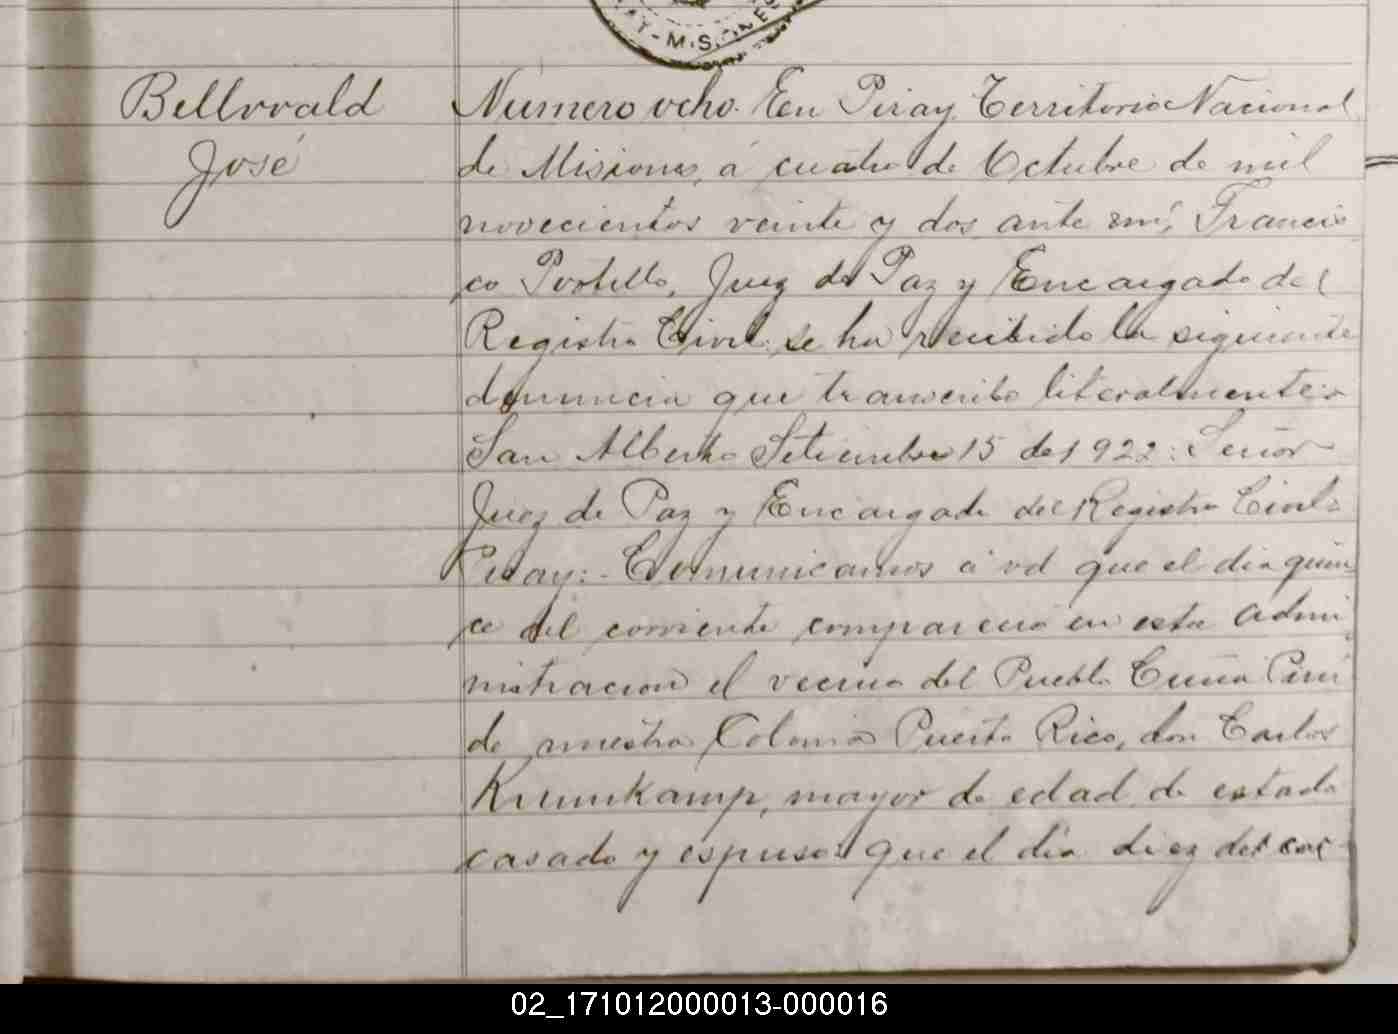 RAY - MISIONES
Bellwald
José
Número ocho. En Piray, Territorio Nacional
de Misiones, á cuatro de Octubre de mil
novecientos veinte y dos, ante mí, Francis
co Portillo, Juez de Paz y Encargado del
Registro Civil se ha recibido la siguiente
denuncia que transcribo literalmente:
San Alberto Setiembre 15 de 1922: Señor
Juez de Paz y Encargado del Registro Civil
Piray:- Comunicamos á vd que el dia quin
ce del corriente compareció en esta admi
nistracion el vecino del Pueblo Cuña Pirú
de nuestra Colonia Puerto Rico, don Carlos
Krumkamp, mayor de edad, de estado
casado y espuso: que el día diez del cor
02_171012000013-000016